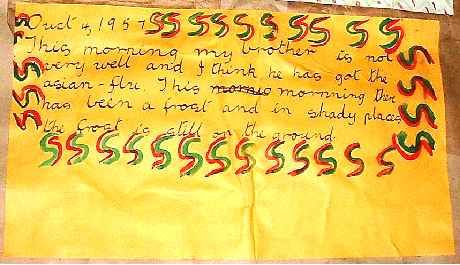 Ouct 4, 1957
This morning my brother is not
very well and I think he has got the
asian-flu. This mornning ther
has been a frost and in shady places
the frost is still on the ground.